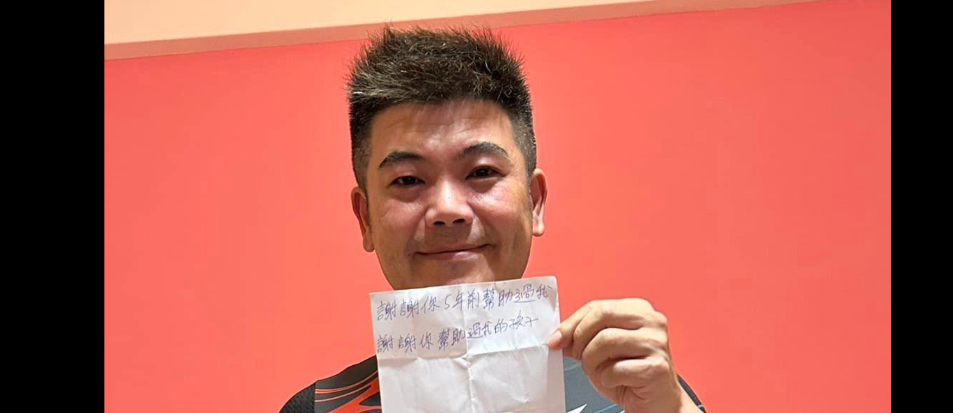 謝謝你5年前幫助過我
謝謝你幫助過我的孩子